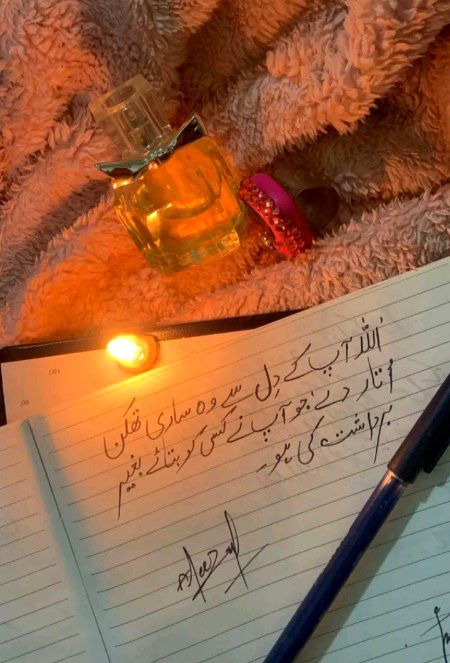 اللہ آپ کے دل سے وہ ساری تھکن
اُتار دے، جو آپ نے کسی کو بتائے بغیر
برداشت کی ہو۔